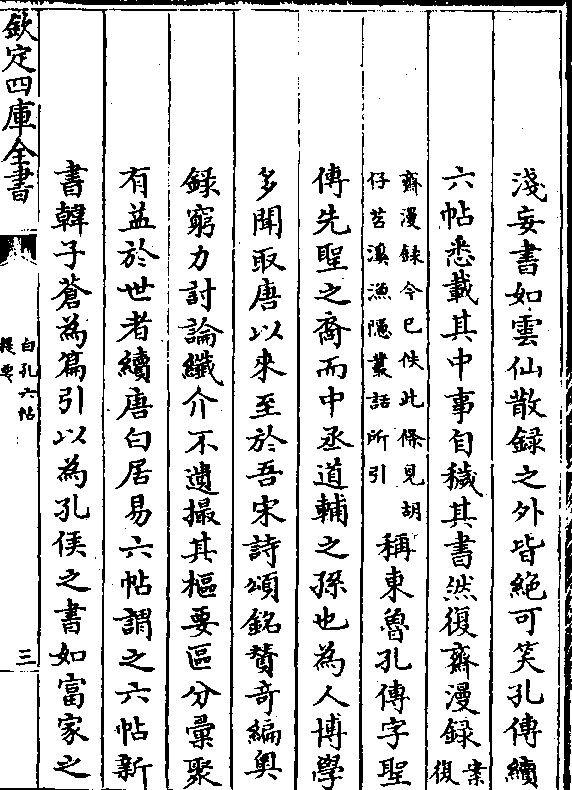 淺妄書如雲仙散録之外皆絶可笑孔傳續
六帖悉載其中事自穢其書然復齋漫録案復
齋漫録今已佚此條見胡
仔苕溪漁隱叢話所引
稱東魯孔傳字聖
傳先聖之裔而中丞道輔之孫也為人博學
多聞取唐以來至於吾宋詩頌銘賛竒編奥
録窮力討論纎介不遺撮其樞要區分彙聚
有益於世者續唐白居易六帖謂之六帖新
書韓子蒼為篇引以為孔侯之書如富家之
欽定四庫全書
白孔六帖
提要
三